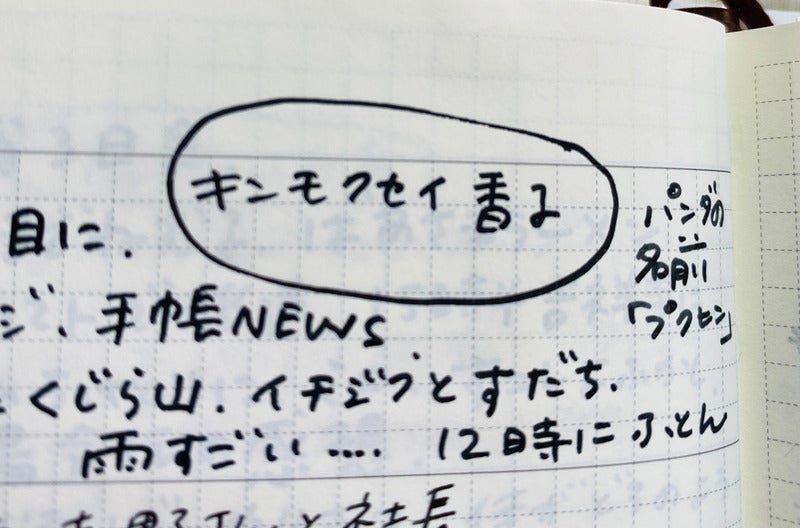 キンモクセイ香る
パンダの
名前
「プクヒン」
目に.
ジ、手帳NEWS
くじら山.イチジクとすだち.
雨すごい.... 12時にふとん
と社長